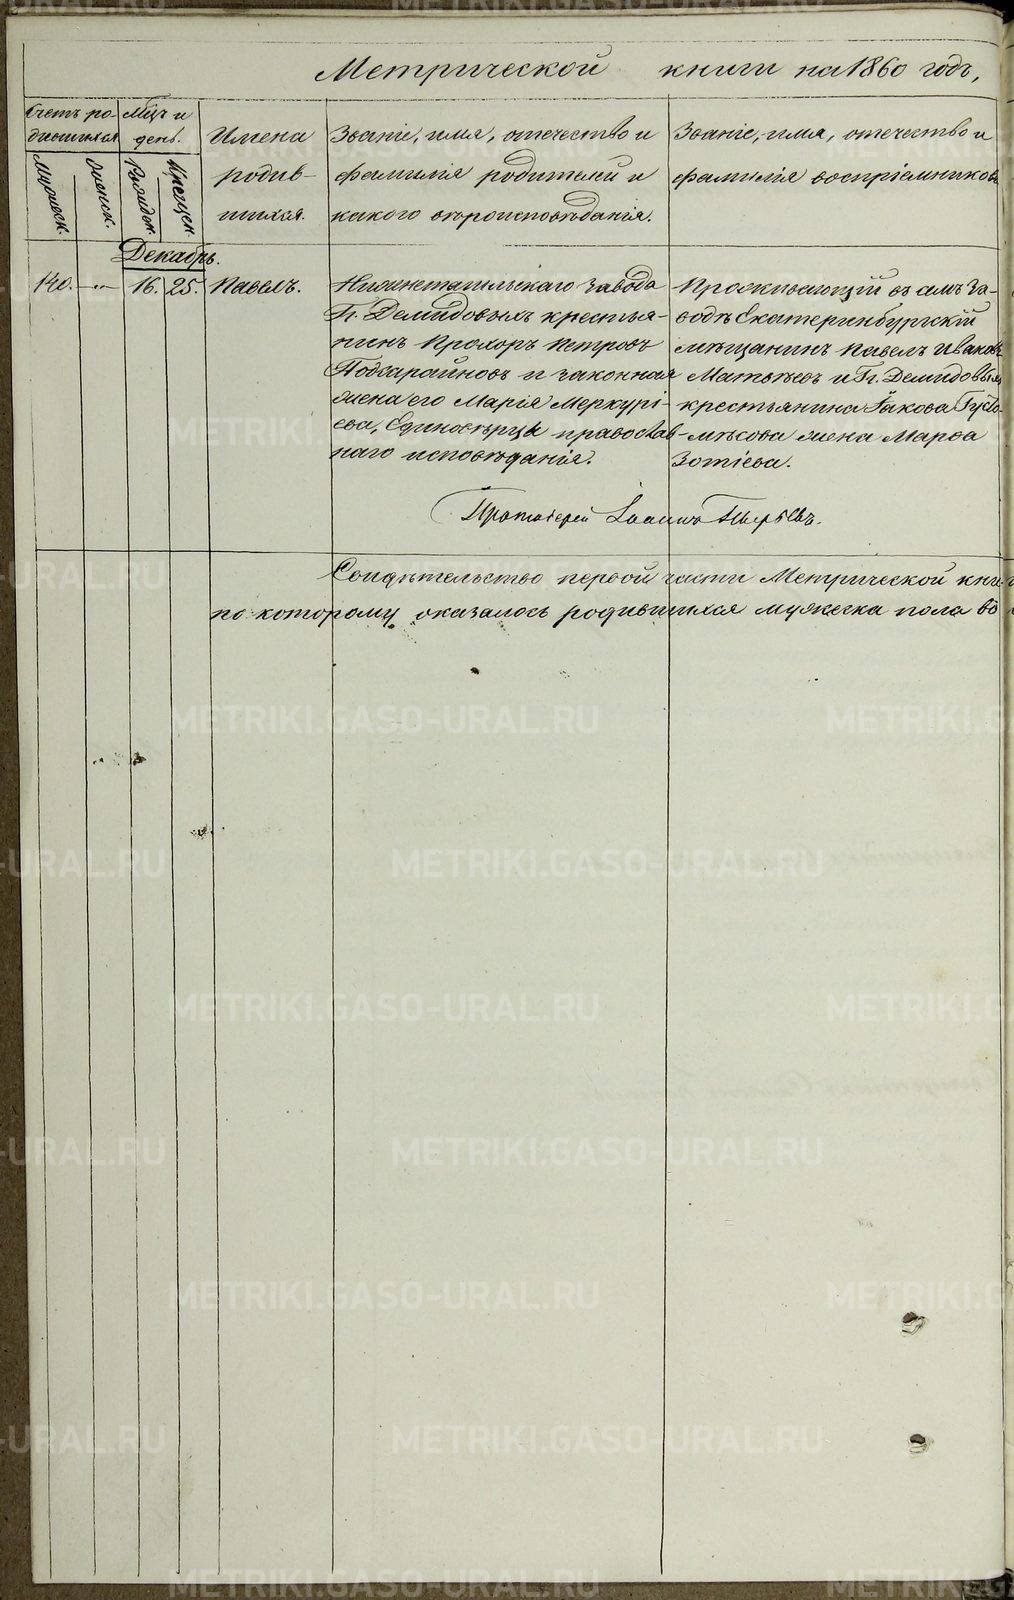 Метрической книги на 1860 годъ,
Счетъ ро-
дившихся
Мцъ и
день.
Мужеск.
Женск.
Рожден.
Крещен.
Имена
родив-
шихся.
Званіе, имя, отечество и
фамилія родителей и
какого вѣроисповѣданія.
Званіе, имя, отечество и
фамилія воспріемниковъ
Декабрь.
140. —„— 16. 25. Павелъ.
Нижнетагильскаго завода
Гг. Демидовыхъ крестья-
нинъ Прохоръ Петровъ
и законная
жена его Марія Меркурі-
ева, Единовѣрцы православ-
наго исповѣданія.
Проживающій въ семъ За-
водѣ Екатеринбургскій
мѣщанинъ Павелъ Ивановъ
Матвѣевъ и Гг. Демидовыхъ
крестьянина Іакова Густо-
мѣсова жена Марѳа
Зотіева.
Протоіерей Іоаннъ
Свидѣтельство первой части Метрической кни-
по которому оказалось родившихся мужеска пола во
METRIKI.GASO-URAL.RU